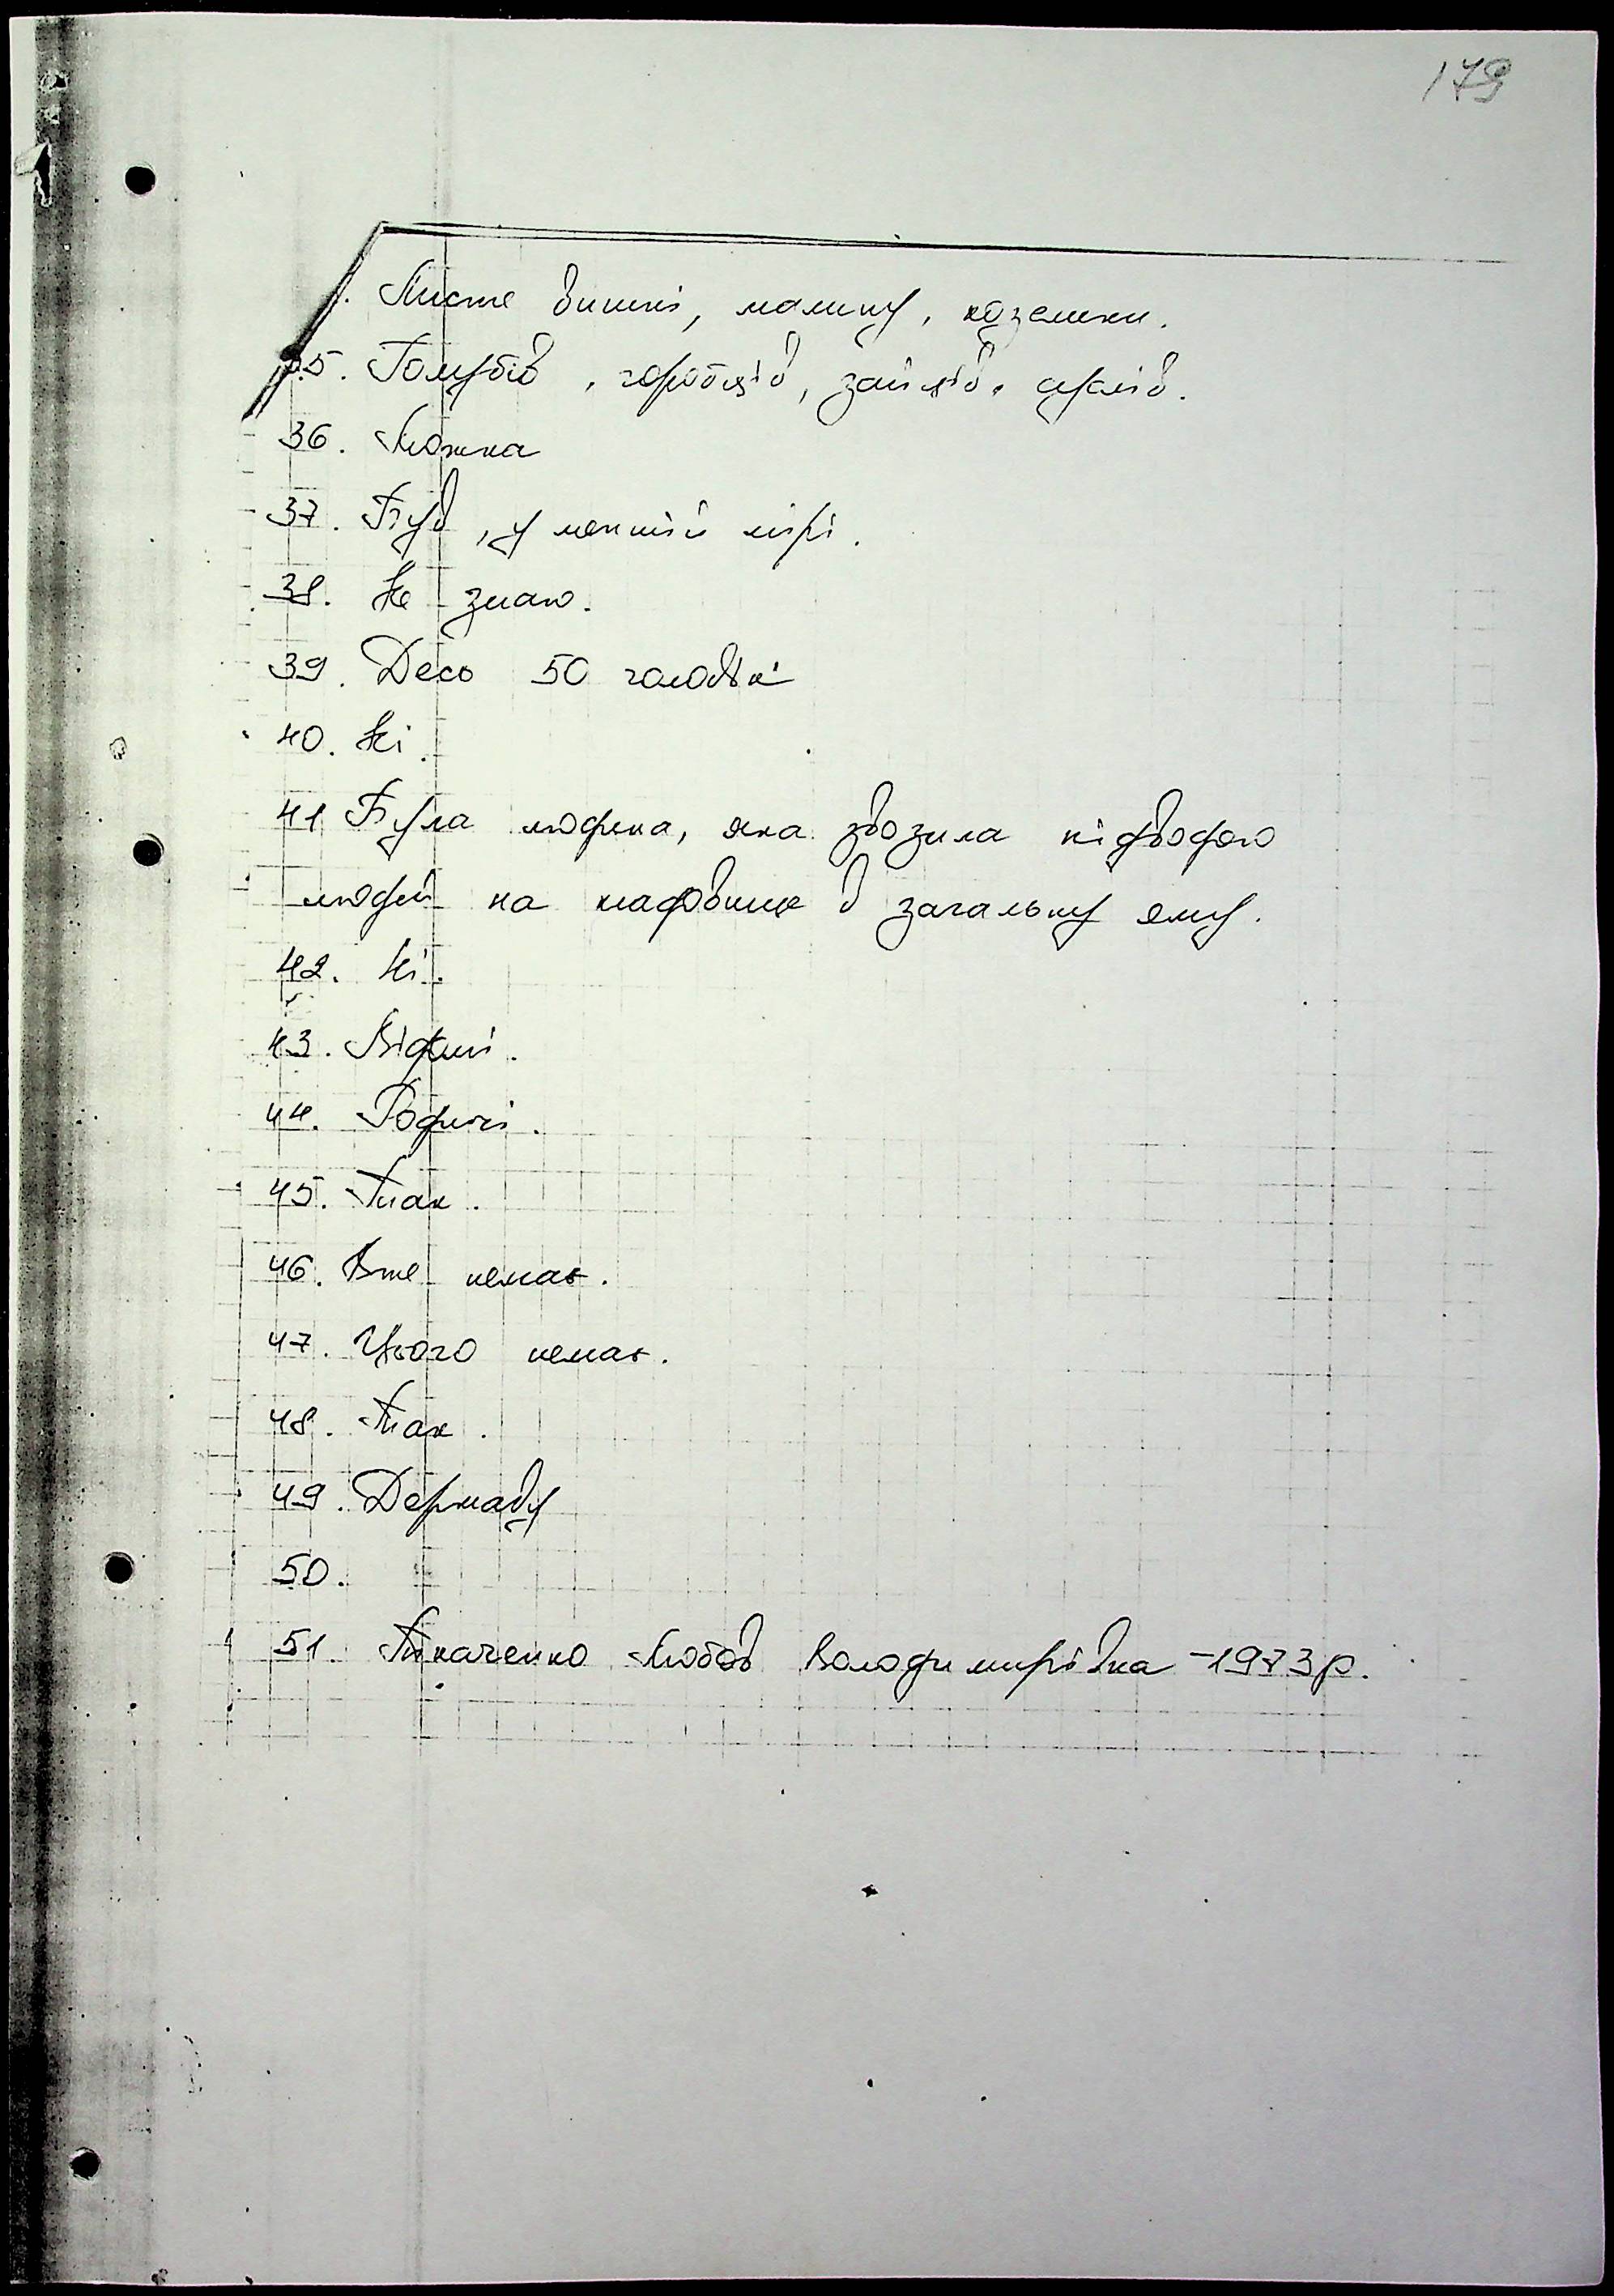 179
. Листе вишні, малину, козельки.
35. Голубів, горобців, зайців, ховрахів.
36. Ложка
37. Був, у меншій мірі.
38. Не знаю.
39. Десь 50 чоловік
40. Ні.
41 Була людина, яка звозила підводою
людей на кладовище в загальну яму.
42. Ні.
43. Відомі.
44. Родичі.
45. Так.
46. Вже немає.
47. Цього немає.
48. Так.
49. Державу
50.
51. Ткаченко Любов Володимирівна - 1973 р.